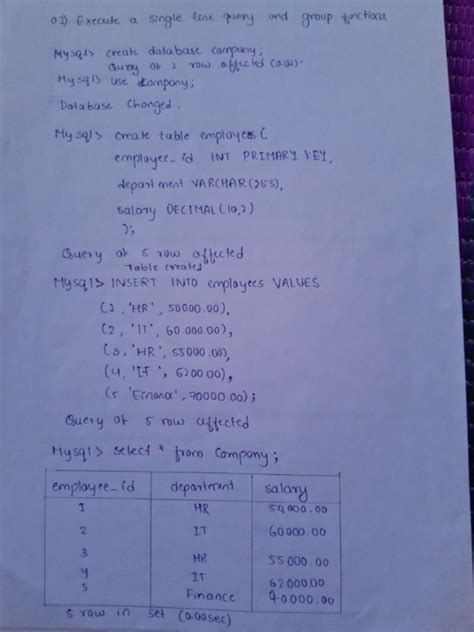 02) Execute a single line query and group functions
Mysql> create database company;
Query ok 1 row affected (0.02).
Mysql> use company;
Database Changed.
Mysql> create table employees (
employee_id INT PRIMARY KEY,
department VARCHAR(255),
salary DECIMAL(10,2)
);
Query ok 5 row affected
Table created
Mysql> INSERT INTO employees VALUES
(1, 'HR', 50000.00),
(2, 'IT', 60.000.00),
(3, 'HR', 55000.00),
(4, 'IT', 6200.00),
(5 'Finance', 70000.00);
Query ok 5 row affected
Mysql> select * from Company;
employee_id department salary
1 HR 50000.00
2 IT 60000.00
3 HR 55000.00
4 IT 62000.00
5 Finance 70000.00
5 row in set (0.00sec)